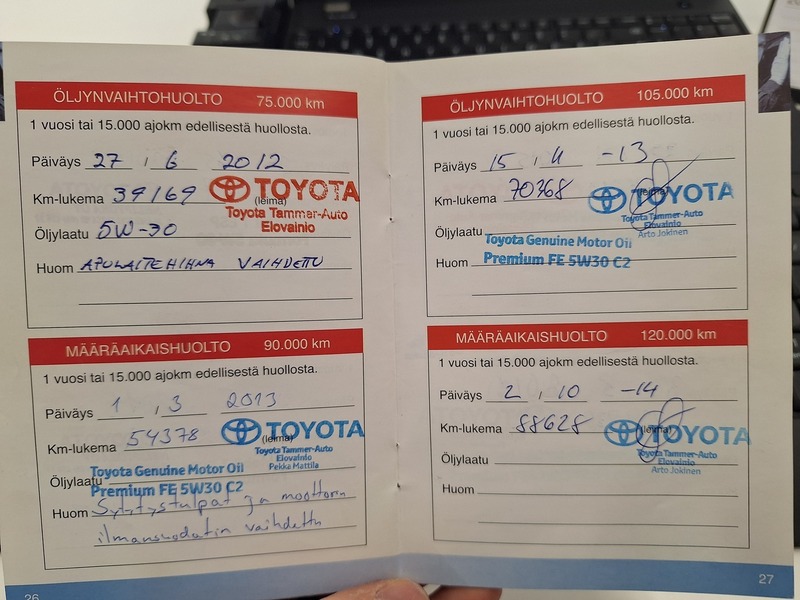 ÖLJYNVAIHTOHUOLTO 75.000 km
1 vuosi tai 15.000 ajokm edellisestä huollosta.
Päiväys 27 . 6 2012
Km-lukema 39169
(leima)
TOYOTA
Toyota Tammer-Auto
Elovainio
Öljylaatu 5W-30
Huom APULAITEHIHNA VAIHDETTU
MÄÄRÄAIKAISHUOLTO 90.000 km
1 vuosi tai 15.000 ajokm edellisestä huollosta.
Päiväys 1 . 3 2013
Km-lukema 54378
(leima)
TOYOTA
Toyota Tammer-Auto
Elovainio
Pekka Mattila
Öljylaatu
Toyota Genuine Motor Oil
Premium FE 5W30 C2
Huom Sytytystulpat ja moottorin
ilmansuodatin vaihdettu
26
ÖLJYNVAIHTOHUOLTO 105.000 km
1 vuosi tai 15.000 ajokm edellisestä huollosta.
Päiväys 15 . 11 -13
Km-lukema 70368
(leima)
TOYOTA
Toyota Tammer-Auto
Elovainio
Arto Jokinen
Öljylaatu
Toyota Genuine Motor Oil
Huom Premium FE 5W30 C2
MÄÄRÄAIKAISHUOLTO 120.000 km
1 vuosi tai 15.000 ajokm edellisestä huollosta.
Päiväys 2 . 10 -14
Km-lukema 88628
(leima)
TOYOTA
Toyota Tammer-Auto
Elovainio
Arto Jokinen
Öljylaatu
Huom
27